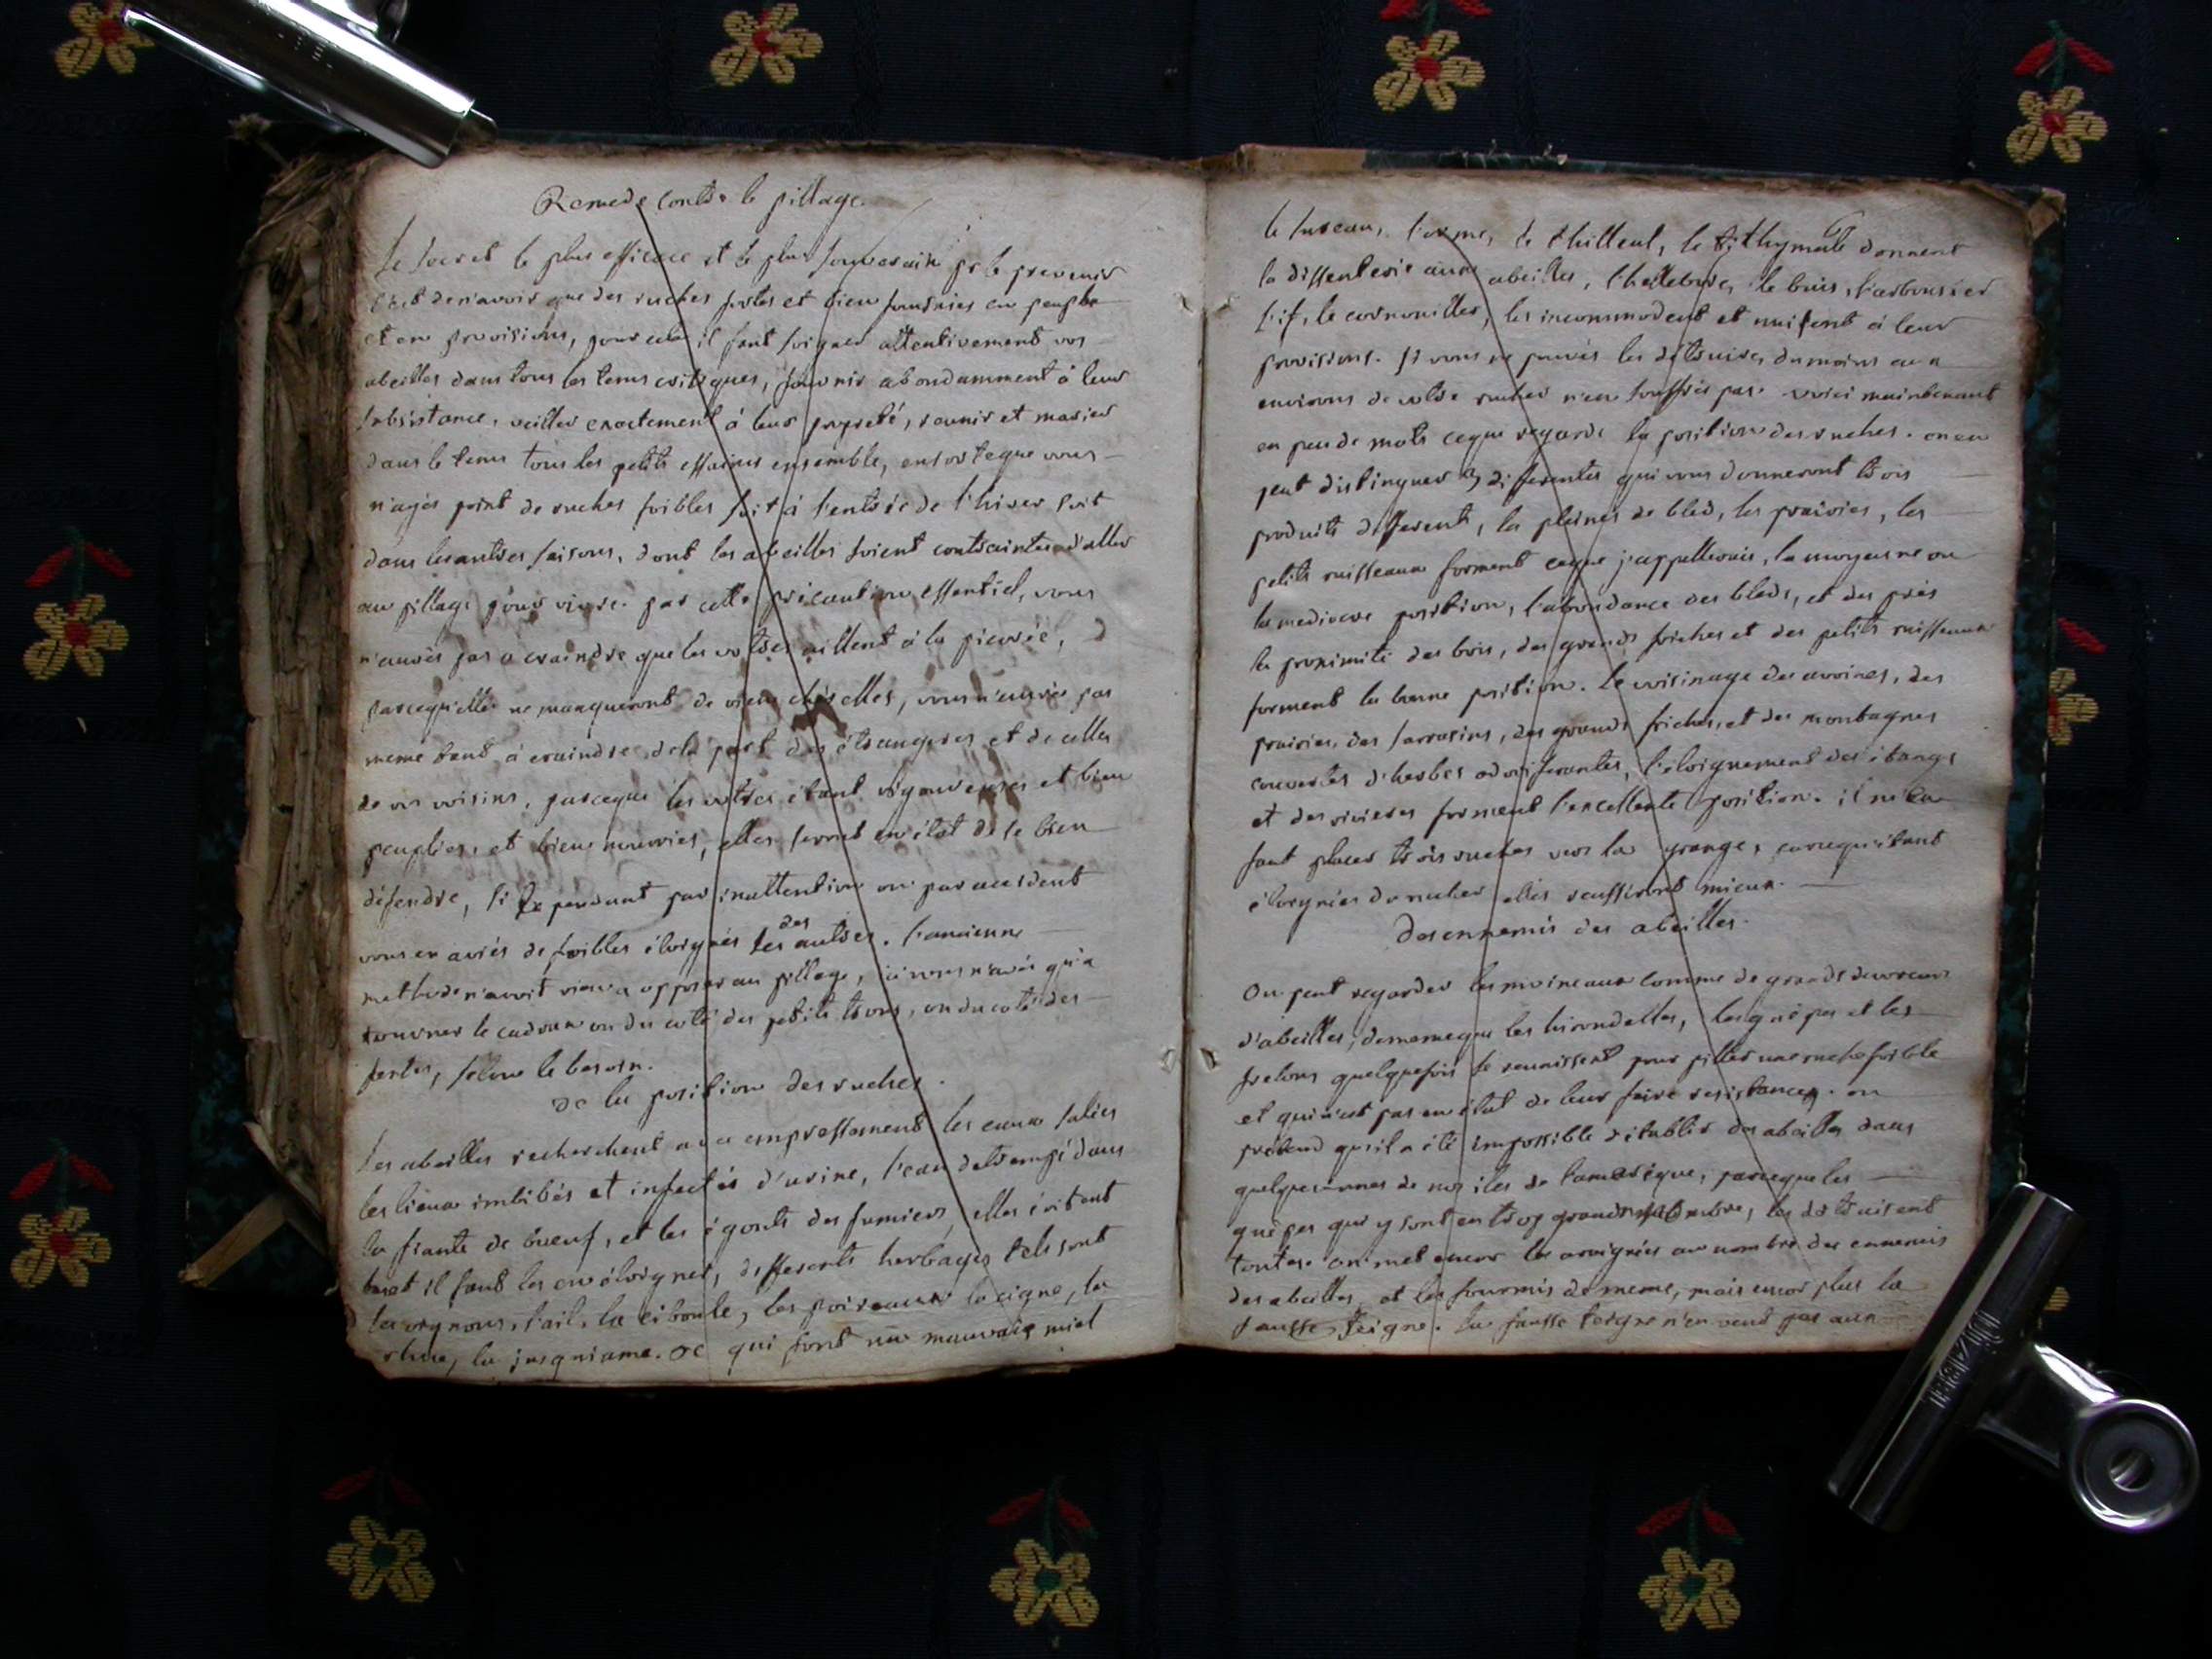 Remede contre le pillage.
Le secret le plus efficace et le plus souverain pr le prevenir
c'est de n'avoir que des ruches fortes et bien fournies en peuple
et en provisions, pour cela il faut soigner attentivement vos
abeilles dans tous les tems critiques, fournir abondamment à leur
subsistance, veiller exactement à leur propreté, reunir et marier
dans le tems tous les petits essaims ensemble, ensorteque vous
n'ayés point de ruches foibles soit à l'entrée de l'hiver soit
dans les autres saisons, dont les abeilles soient contraintes d'aller
au pillage pour vivre. par cette précaution essentiel, vous
n'aurés pas a craindre que les votres aillent à la picorée,
parcequ'elles ne manqueront de rien chés elles, vous n'aurés pas
meme tant à craindre de la part des étrangeres et de celles
de vos voisins, parceque les votres étant vigoureuses et bien
peuplées, et bien nourries, elles seront en état de se bien
défendre, si cependant par inattention ou par accident
vous en aviés de foibles éloignés les des autres. l'ancienne
methode n'avoit rien a opposer au pillage, ici vous n'avés qu'a
tourner le cadran ou du coté des petits trous, ou du coté des
fentes, selon le besoin.
de la position des ruches.
Les abeilles recherchent avec empressement les eaux salées
les lieux imbibés et infectés d'urine, l'eau detrempé dans
la fiante de boeuf, et les égouts des fumiers, elles évitent
et il faut les en éloigner, differents herbages tels sont
les oignons, l'ail, la ciboule, les poireaux la cigue, la
rhue, la jusquiame. &c qui font un mauvais miel
le sureau, l'orme, le thilleul, le tithymale donnent
la dissenterie aux abeilles, l'hellebore, le buis, l'arbousier
l'if, le cornouiller, les incommodent et nuisent à leur
provisions. si vous ne pouvés les détruire, du moins aux
environs de votre rucher n'en souffrés pas. voici maintenant
en peu de mots ceque regarde la position des ruches. on en
peut distinguer 3 differentes qui vous donneront trois
produits differents, les pleines de bled, les prairies, les
petits ruisseaux forment ceque j'appellerais, la moyenne ou
la mediocre position, l'abondance des bleds, et des prés
la proximité des bois, des grands friches et des petits ruisseaux
forment la bonne position. le voisinage des avoines, des
prairies, des sarrasins, des grands friches, et des montagnes
couvertes d'herbes odoriferantes, l'éloignement des étangs
et des rivieres forment l'excellente position. il
faut placer trois ruches vers la grange, parcequ'étant
éloignées du rucher elles reussiront mieux.
des ennemis des abeilles.
On peut regarder les moineaux comme de grands devoreurs
d'abeilles, de meme que les hirondelles, les guêpes et les
frelons quelquefois se reunissent pour piller une ruche foible
et qui n'est pas en état de leur faire resistance. on
prétend qu'il a été impossible d'établir des abeilles dans
quelques unes de nos iles de l'amerique, parceque les
guêpes qui y sont en trop grand nombre, les détruisent
toutes. on met encor les araignées au nombre des ennemis
des abeilles, et les fourmis de meme, mais encor plus la
fausse teigne. la fausse teigne n'en veut pas aux